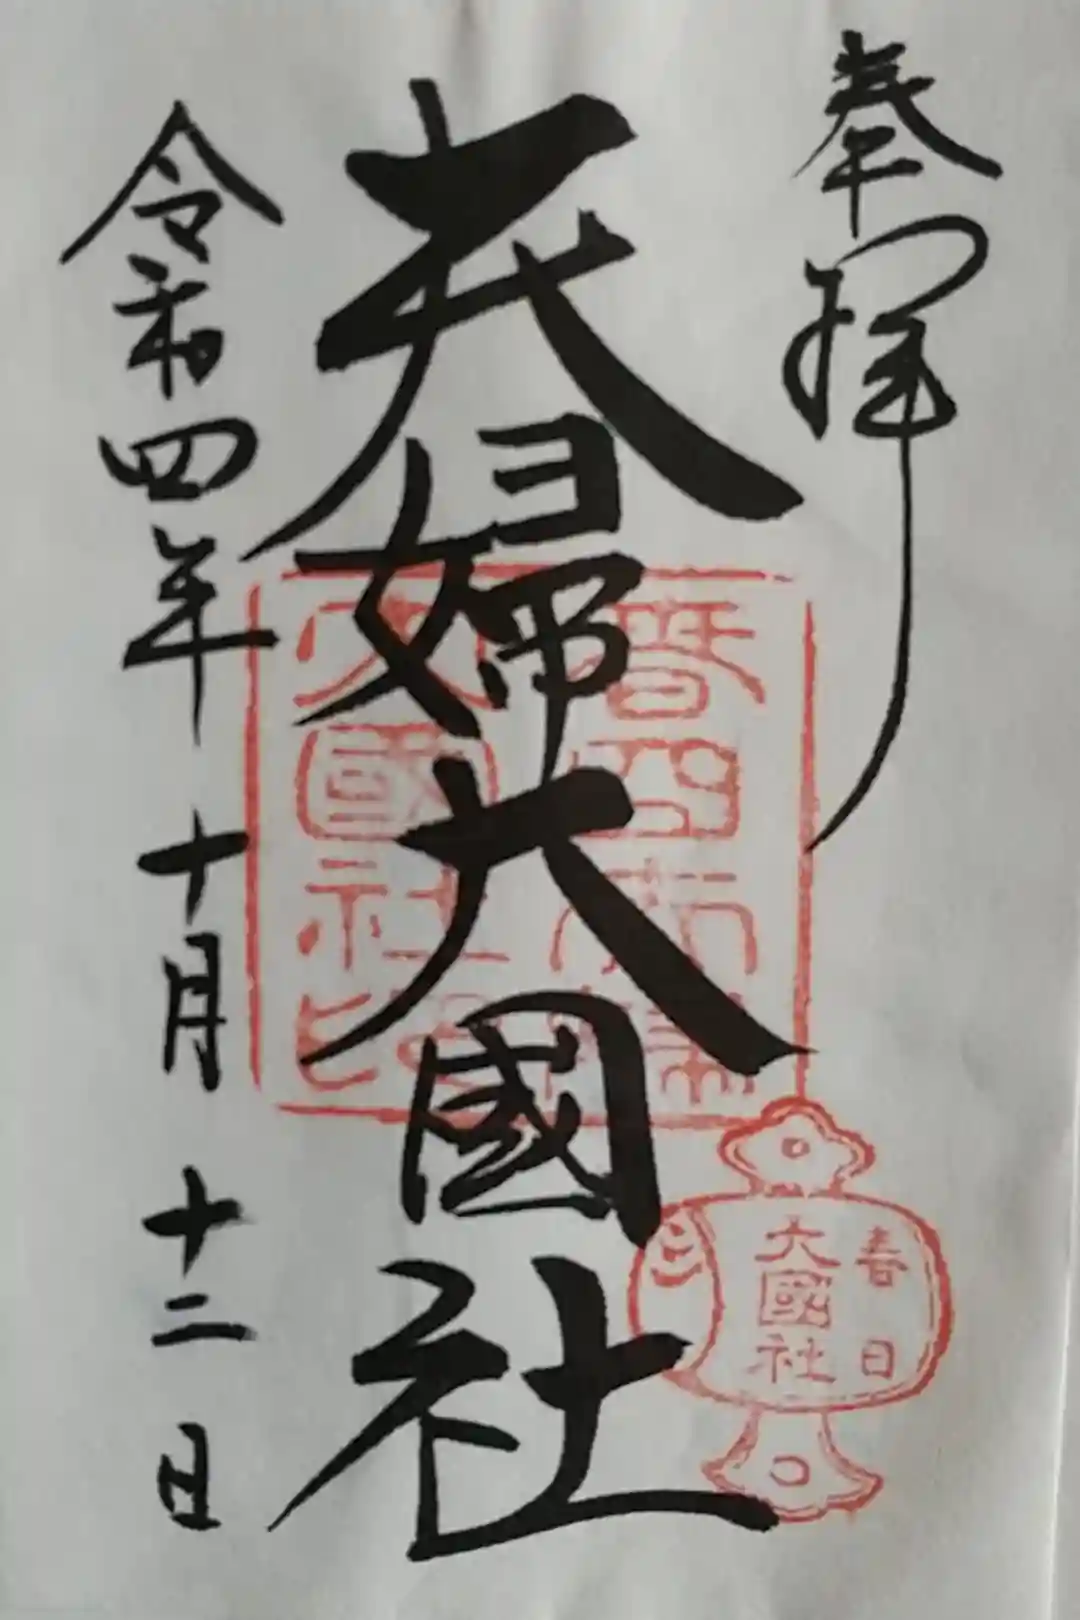 奉拝
夫婦大國社
令和四年十月十二日
大國社印
春日
大國社